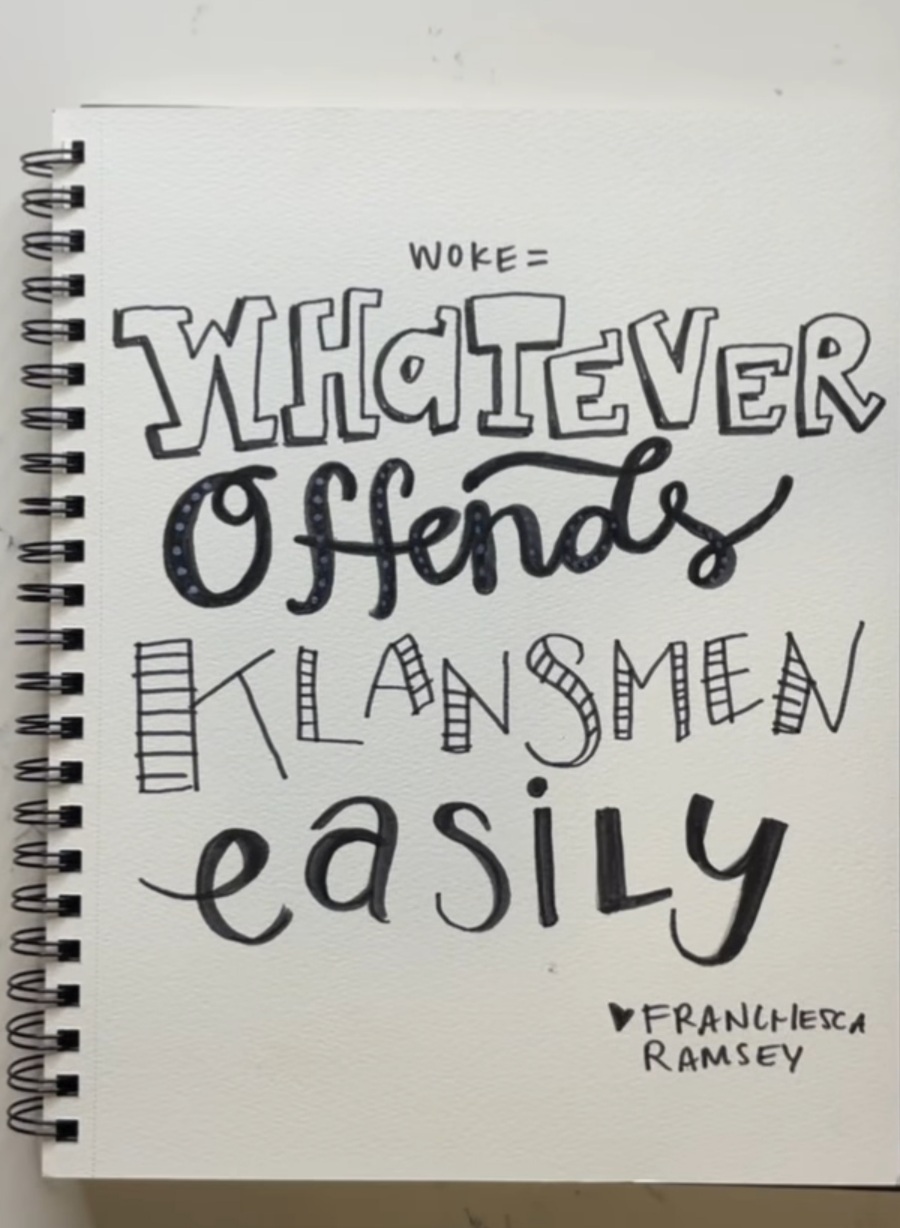 WOKE=
WHaTEVER
Offends
KLANSMEN
easiLy
♥ FRANCHESCA
RAMSEY